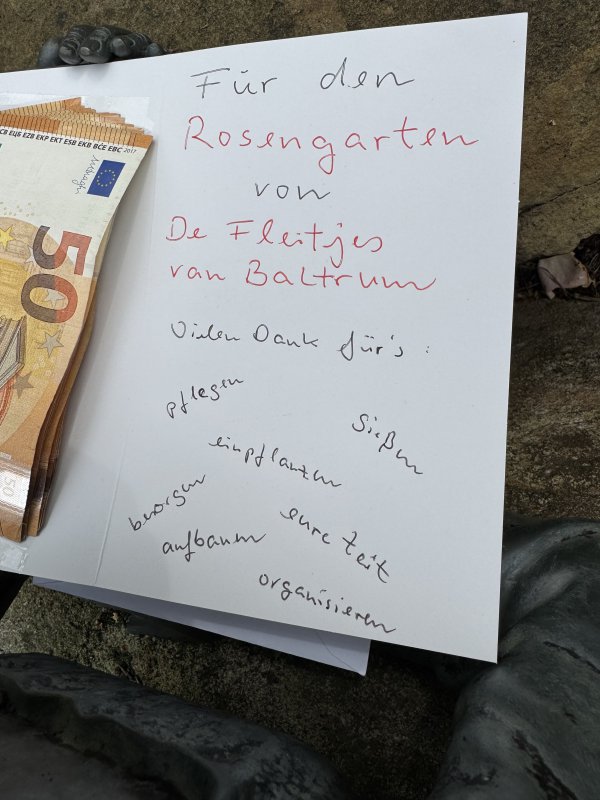 Für den
Rosengarten
von
De Fleitjes
van Baltrum
Vielen Dank für's:
pflegen
gießen
einpflanzen
besorgen
eure Zeit
aufbauen
organisieren
ECB EZB EKP EKT ESB EKB BĊE EBC 2017
50
50